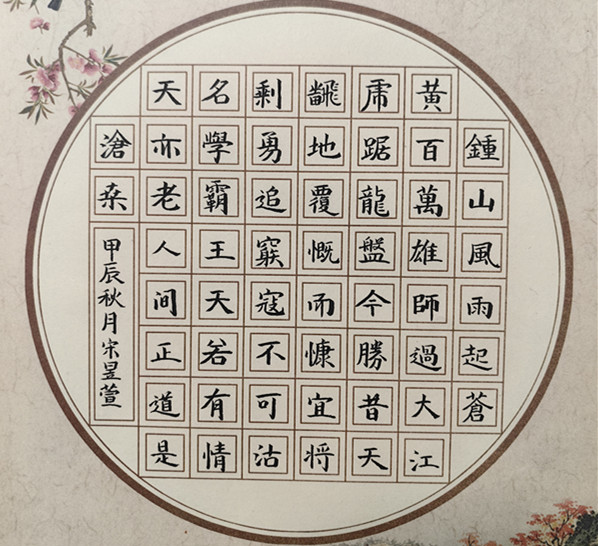 鍾山風雨起蒼
黄百萬雄師過大江
虎踞龍盤今勝昔天
飜地覆慨而慷宜將
剩勇追窮寇不可沽
名學霸王天若有情
天亦老人间正道是
滄桑
甲辰秋月宋昱萱